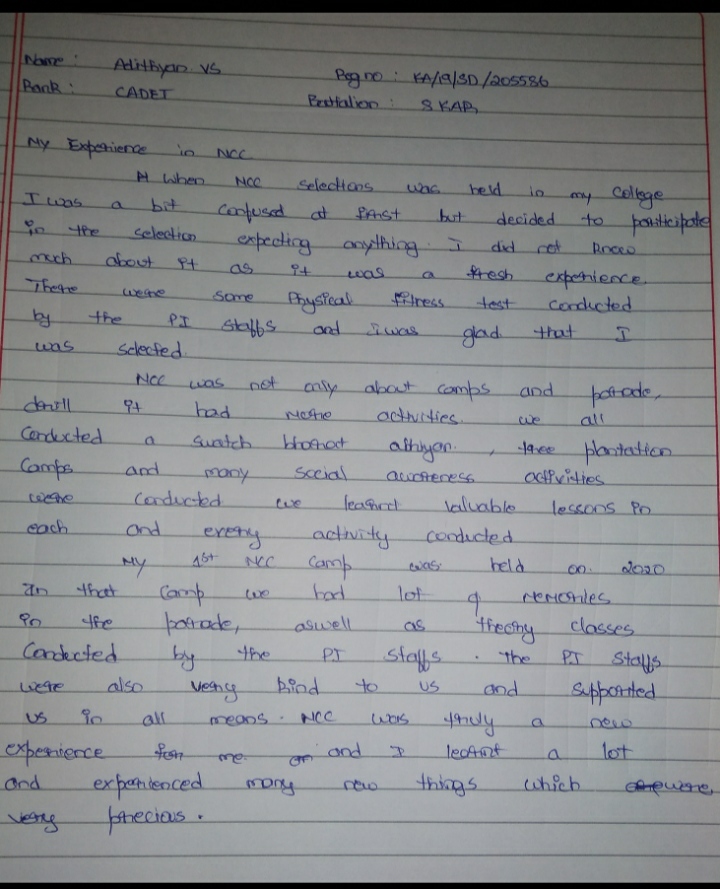 Name : Adithyan VS Reg no : KA/19/SD/205586
Rank : CADET Battalion : 8 KAR
My Experience in NCC
When NCC selections was held in my College
I was a bit confused at first but decided to participate
in the selection expecting anything. I did not know
much about it as it was a fresh experience
There were some Physical fitness test conducted
by the PI staffs and I was glad that I
was selected.
NCC was not only about camps and parade,
drill it had more activities. we all
Conducted a swatch bharat abhiyan. , tree plantation
Camps and many social awareness activities
were conducted we learnt valuable lessons in
each and every activity conducted
My 1st NCC Camp was held on 2020
In that Camp we had lot of memories
in the parade, aswell as theory classes
Conducted by the PI staffs . the PI Staffs
were also very kind to us and supported
us in all means. NCC was truly a new
experience for me and I learnt a lot
and experienced many new things which were
very precious.